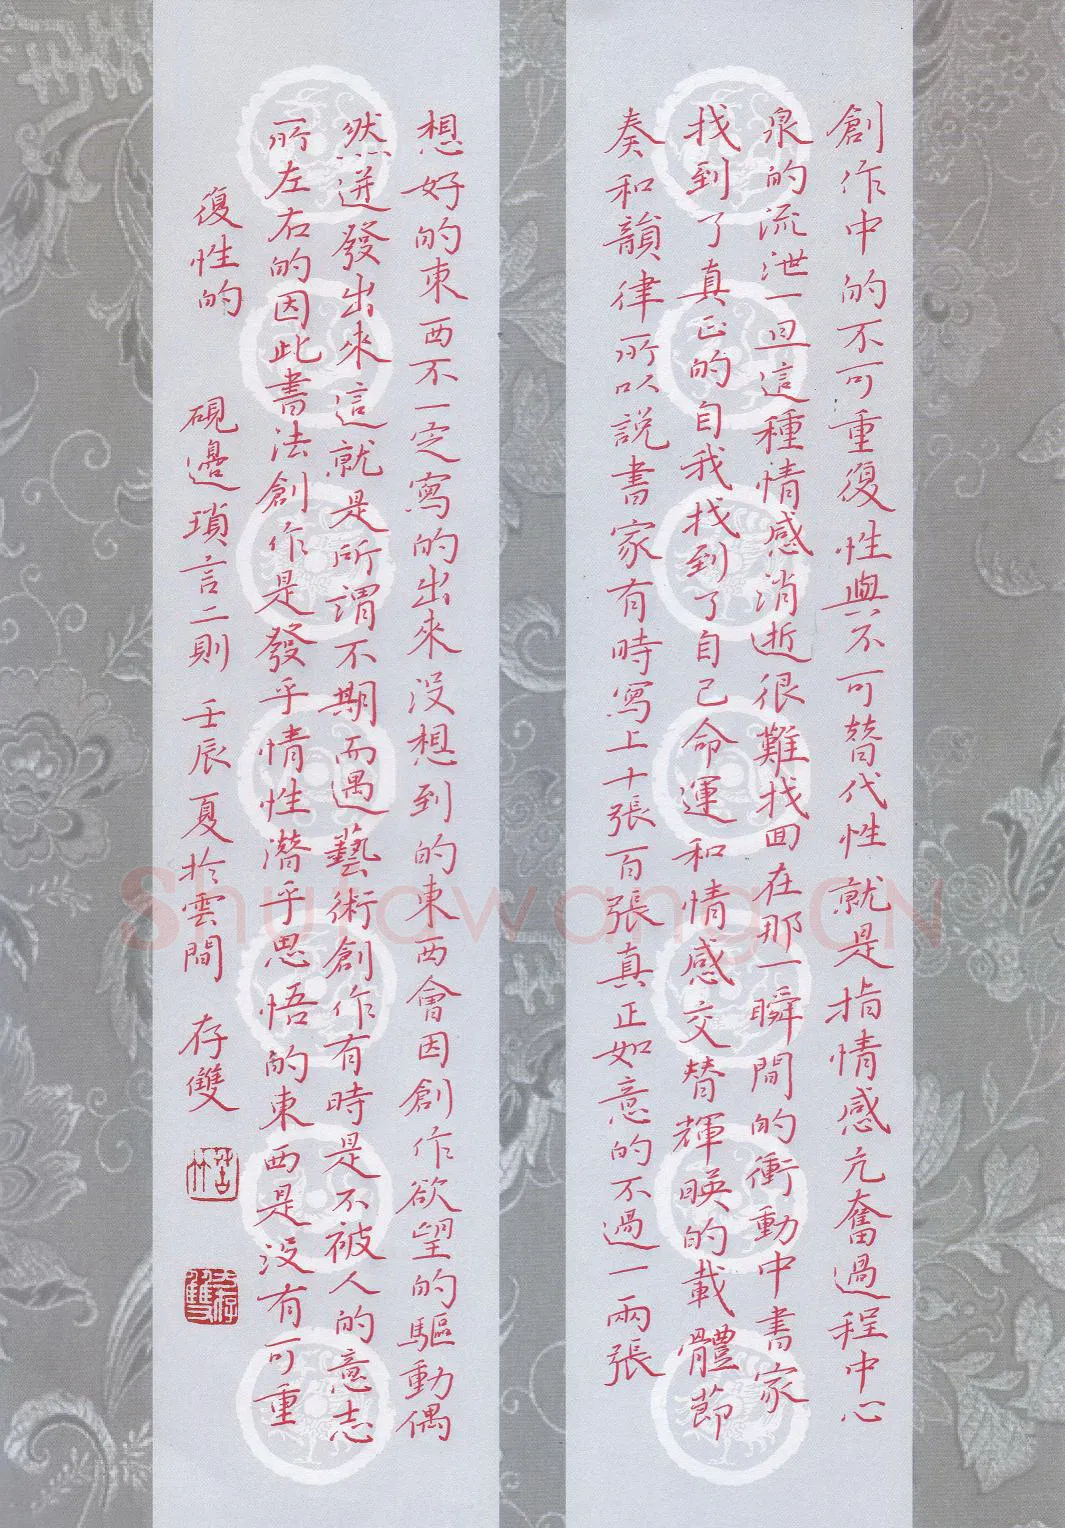 創作中的不可重復性與不可替代性就是指情感亢奮過程中心
泉的流泄一旦這種情感消逝很難找回在那一瞬間的衝動中書家
找到了真正的自我找到了自己命運和情感交替輝暎的載體節
奏和韻律所以説書家有時寫上十張百張真正如意的不過一兩張
想好的東西不一定寫的出來没想到的東西會因創作欲望的驅動偶
然迸發出來這就是所謂不期而遇藝術創作有時是不被人的意志
所左右的因此書法創作是發乎情性潛乎思悟的東西是没有可重
復性的 硯邊瑣言二則 壬辰夏於雲間 存雙
Shufawang.CN